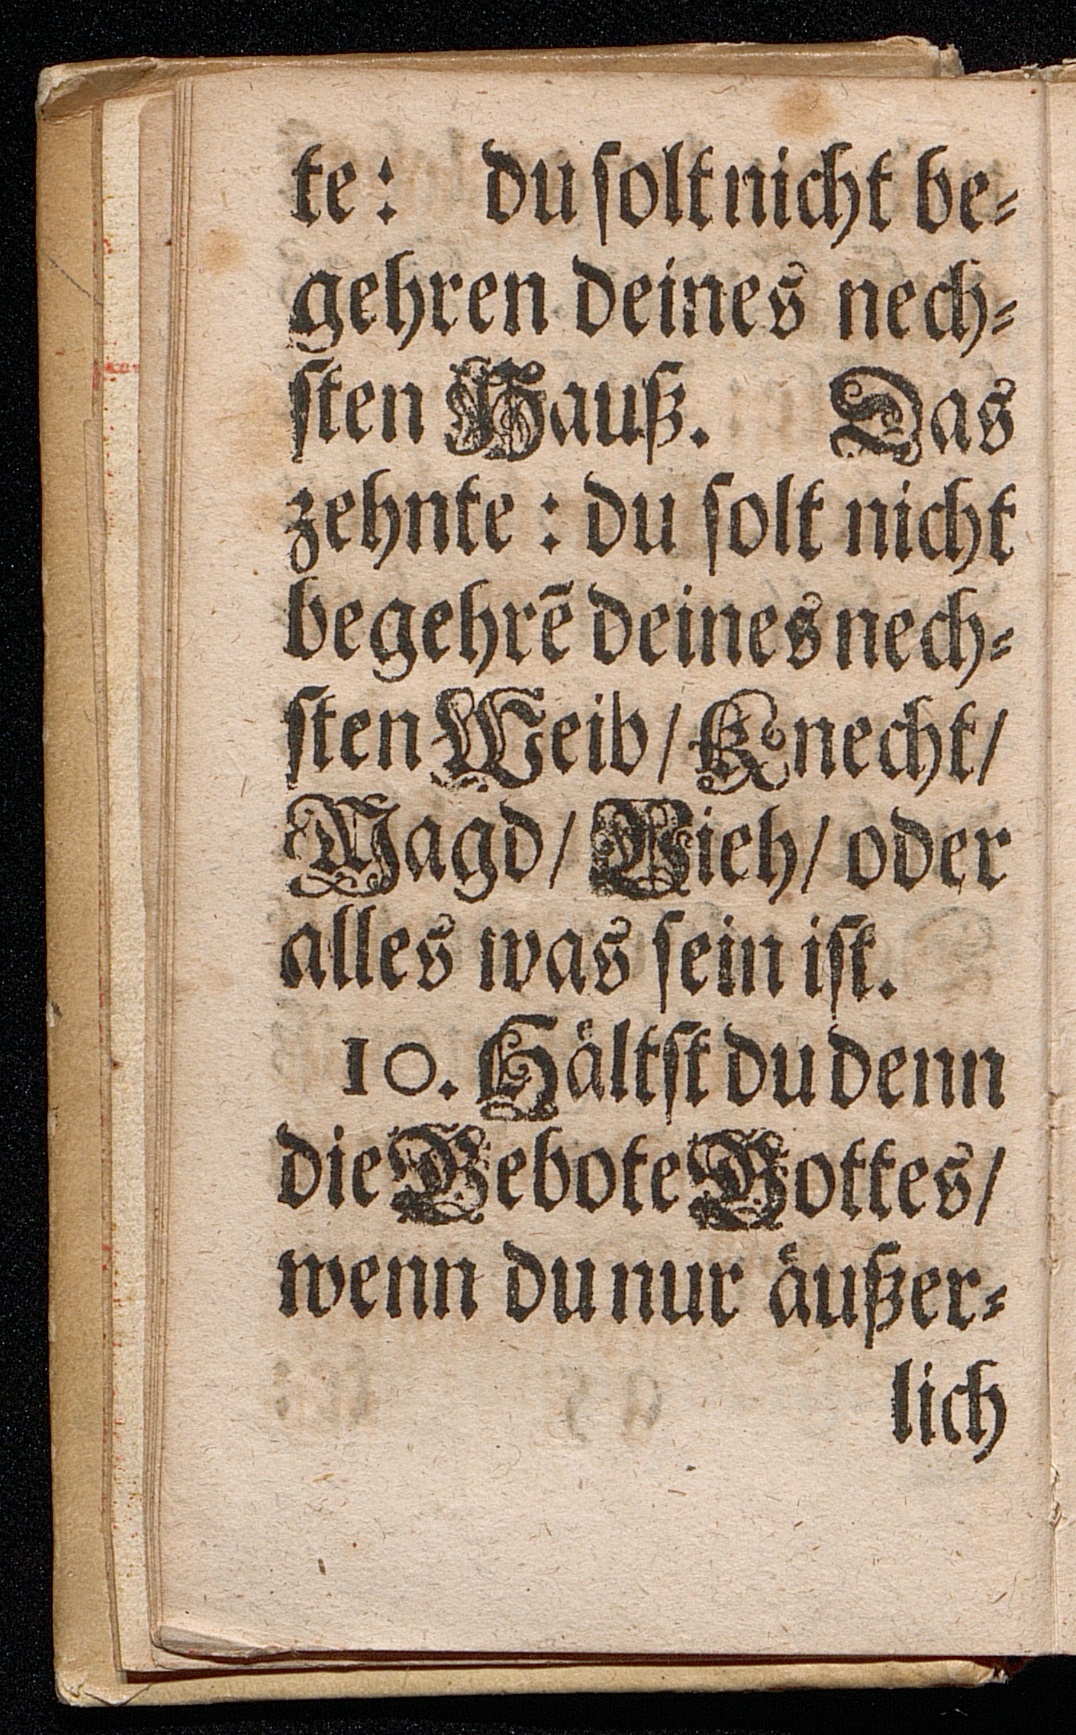 te: du ſolt nicht be⸗
gehren deines nech⸗
ſten Hauß. Das
zehnte: du ſolt nicht
begehrē deines nech⸗
ſten Weib/ Knecht/
Magd/ Vieh/ oder
alles was ſein iſt.
10. Hältſt du denn
die Gebote Gottes/
wenn du nur äußer⸗
lich